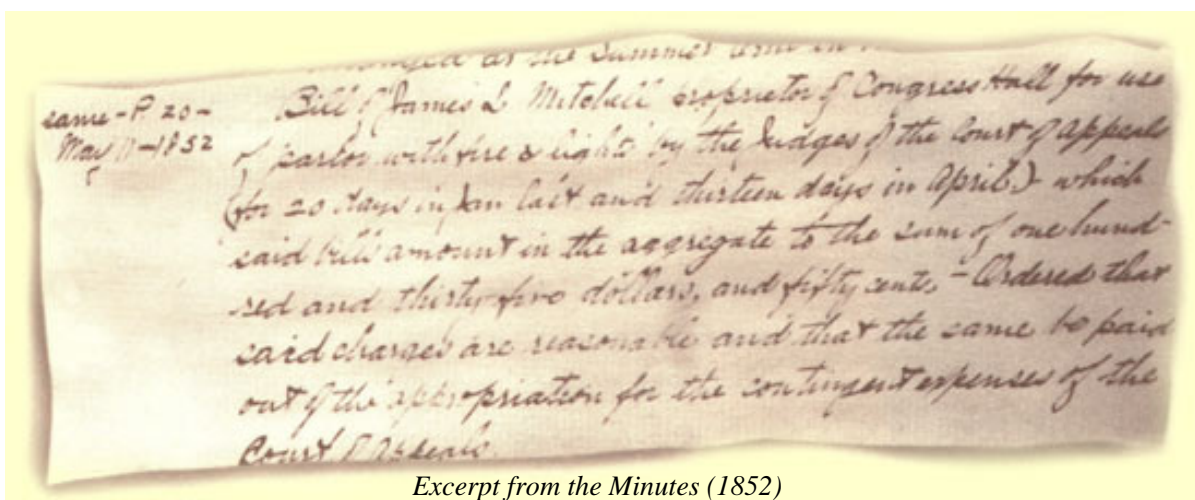 as the Summer term in
same - P. 20 -
May 11 - 1852
Bill of James L Mitchell proprietor of Congress Hall for use
of parlor with fire & lights by the Judges of the Court of Appeals
(for 20 days in Jan last and thirteen days in April) which
said bills amount in the aggregate to the sum of one hund-
red and thirty-five dollars, and fifty cents - Ordered that
said charges are reasonable and that the same be paid
out of the appropriation for the contingent expenses of the
Court of Appeals.
Excerpt from the Minutes (1852)